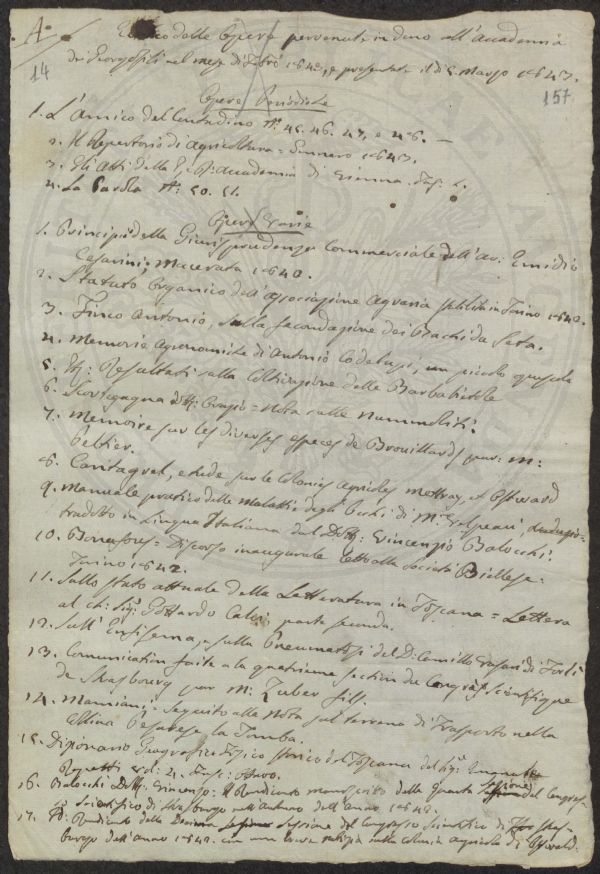 A.
14
157
Elenco delle Opere pervenute in dono all'Accademia
dei Georgofili nel mese di Febbr. 1843, e presentate il dì 5. Marzo 1843.
Opere Periodiche
1. L'Amico del Contadino N.i 45. 46. 47. e 48. —
2. Il Repertorio di Agricoltura = Gennaro 1843.
3. Gli Atti della Accademia di Vienna. Fas: 1.
4. La Parola N.i 50. 51.
Opere Varie
1. Principj della Giurisprudenza Commerciale dell'Av: Emidio
Cesarini, Macerata 1840.
2. Statuto Organico dell'Associazione Agraria stabilita in Torino 1842.
3. Finco Antonio, Sulla fecondazione dei Bachi da Seta.
4. Memorie Agronomiche di Antonio Codelupi, un piccolo opuscolo
5. Resultati sulla Coltivazione delle Barbabietole
6. Scortegagna D: Orazio = Nota sulle Nummoliti.
7. Memoire sur les diverses especes de Brouillards par: M:
Peltier.
8. Cantagrel, etude sur les Colonies Agricoles Mettray, et Ostward
9. Manuale pratico delle Malattie degli Occhi di Velpeau,
tradotto in Lingua Italiana dal Dott: Vincenzio Balocchi.
10. Discorso inaugurale letto alla Società Biellese.
Torino 1842.
11. Sullo stato attuale della Letteratura in Toscana = Lettera
al ch: Sig: Gottardo Calvi parte seconda.
12. Sull'Enfisema, e sulla Pneumatosi del D: Camillo Versari di Forlì
13. Comunication faite a la quatrieme section du Congrés Scientifique
de Strasbourg par M: Zuber fils.
14. Mamiani = Seguito alla Nota sul terreno di Trasporto nella
Collina Pesarese la Tomba.
15. Dizionario Geografico Fisico Storico della Toscana del Sig:
Repetti Vol: 4. Fasc: Ottavo.
16. Balocchi Dott: Vincenzo: Il Rendiconto manoscritto della Quarta Sezione del Congresso
Scientifico di Strasburgo nell'autunno dell'anno 1842.
17. Rendiconto della Decima Sessione del Congresso Scientifico di Stras-
burgo dell'anno 1842. con una breve notizia sulla Colonia agricola di Ostwald.